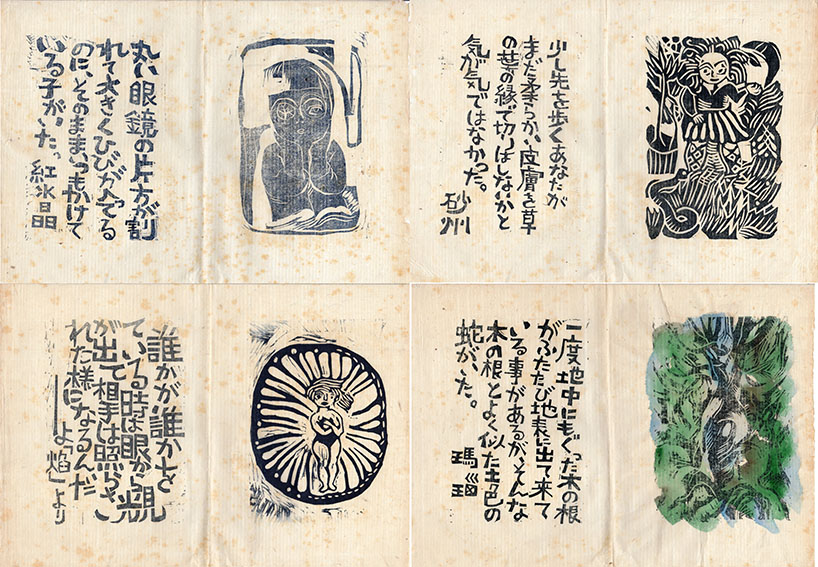 丸い眼鏡の片方が割
れて大きくひびが入ってる
のに、そのままいつもかけて
いる子がいた。 紅水晶
少し先を歩くあなたが
まだ柔らかい皮膚を草
の葉の縁で切りはしないかと
気が気ではなかった。
砂州
誰かが誰かを視
ている時は眼から光
が出て相手は照らさ
れた様になるんだ
よ 焰」より
一度地中にもぐった木の根
がふたたび地表に出て来て
いる事があるが、そんな
木の根とよく似た土色の
蛇がいた。
瑪瑙